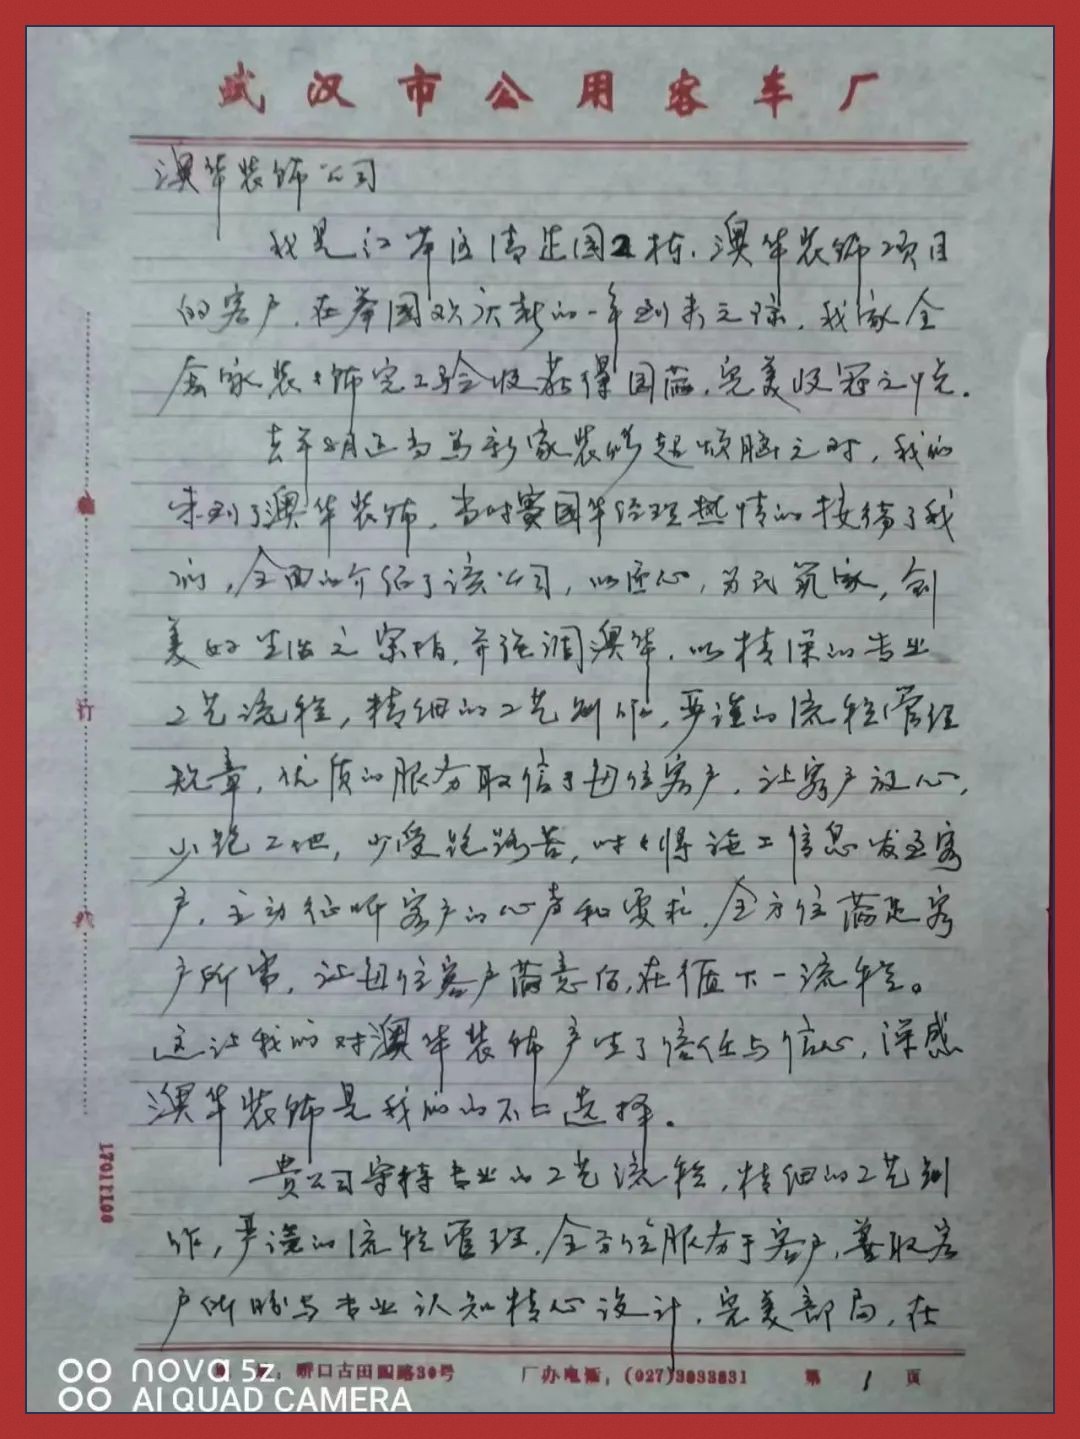 武汉市公用客车厂
澳华装饰公司
我是江岸区清建园2栋，澳华装饰项目
的客户，在举国欢庆新的一年到来之际，我家全
家装饰完工验收获得圆满，完美收冠之悦。
去年8月正当为新家装修起烦脑之时，我们
来到了澳华装饰，当时国华经理热情的接待了我
们，全面的介绍了该公司，以匠心，为民筑家，创
美好生活之宗旨，并强调澳华，以精深的专业
工艺流程，精细的工艺制作，严谨的流程管理
规章，优质的服务取信于每位客户，让客户放心，
少跑工地，少受跑路苦，时时将施工信息发至客
户，主动征听客户的心声和要求，全方位满足客
户所需，让每位客户满意后，在值下一流程。
这让我们对澳华装饰产生了信任与信心，深感
澳华装饰是我们的不二选择。
贵公司守持专业的工艺流程，精细的工艺制
作，严谨的流程管理，全方位服务于客户，善取客
户所盼与专业认知精心设计，完美部局，在
桥口古田四路30号
厂办电话：(027)3833831
第1页
订
线
17011100
nova 5z
AI QUAD CAMERA